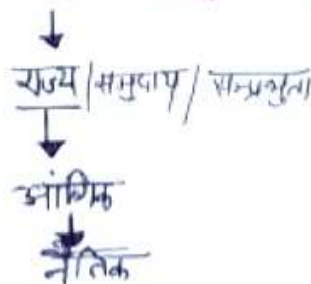 राज्य / समुदाय / सम्प्रभुता
आंगिक
नैतिक